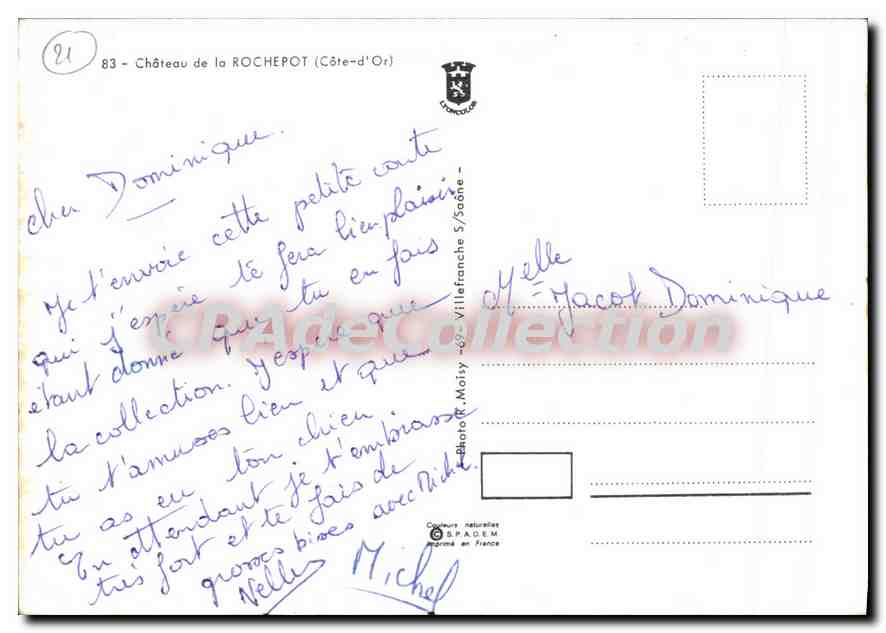 21
83 - Château de la ROCHEPOT (Côte-d'Or)
LYONCOLOR
cher Dominique.
Je t'envoie cette petite carte
qui j'espère te fera bien plaisir
étant donné que tu en fais
la collection. J'espère que
tu t'amuses bien et que
tu as eu ton chien
En attendant je t'embrasse
très fort et te fais de
grosses bises avec Michel.
Nelly
Michel
Photo R. Moisy -69- Villefranche S/Saône -
Melle
Jacot Dominique
Couleurs naturelles
© S.P.A.D.E.M.
Imprimé en France
CPAdeCollection